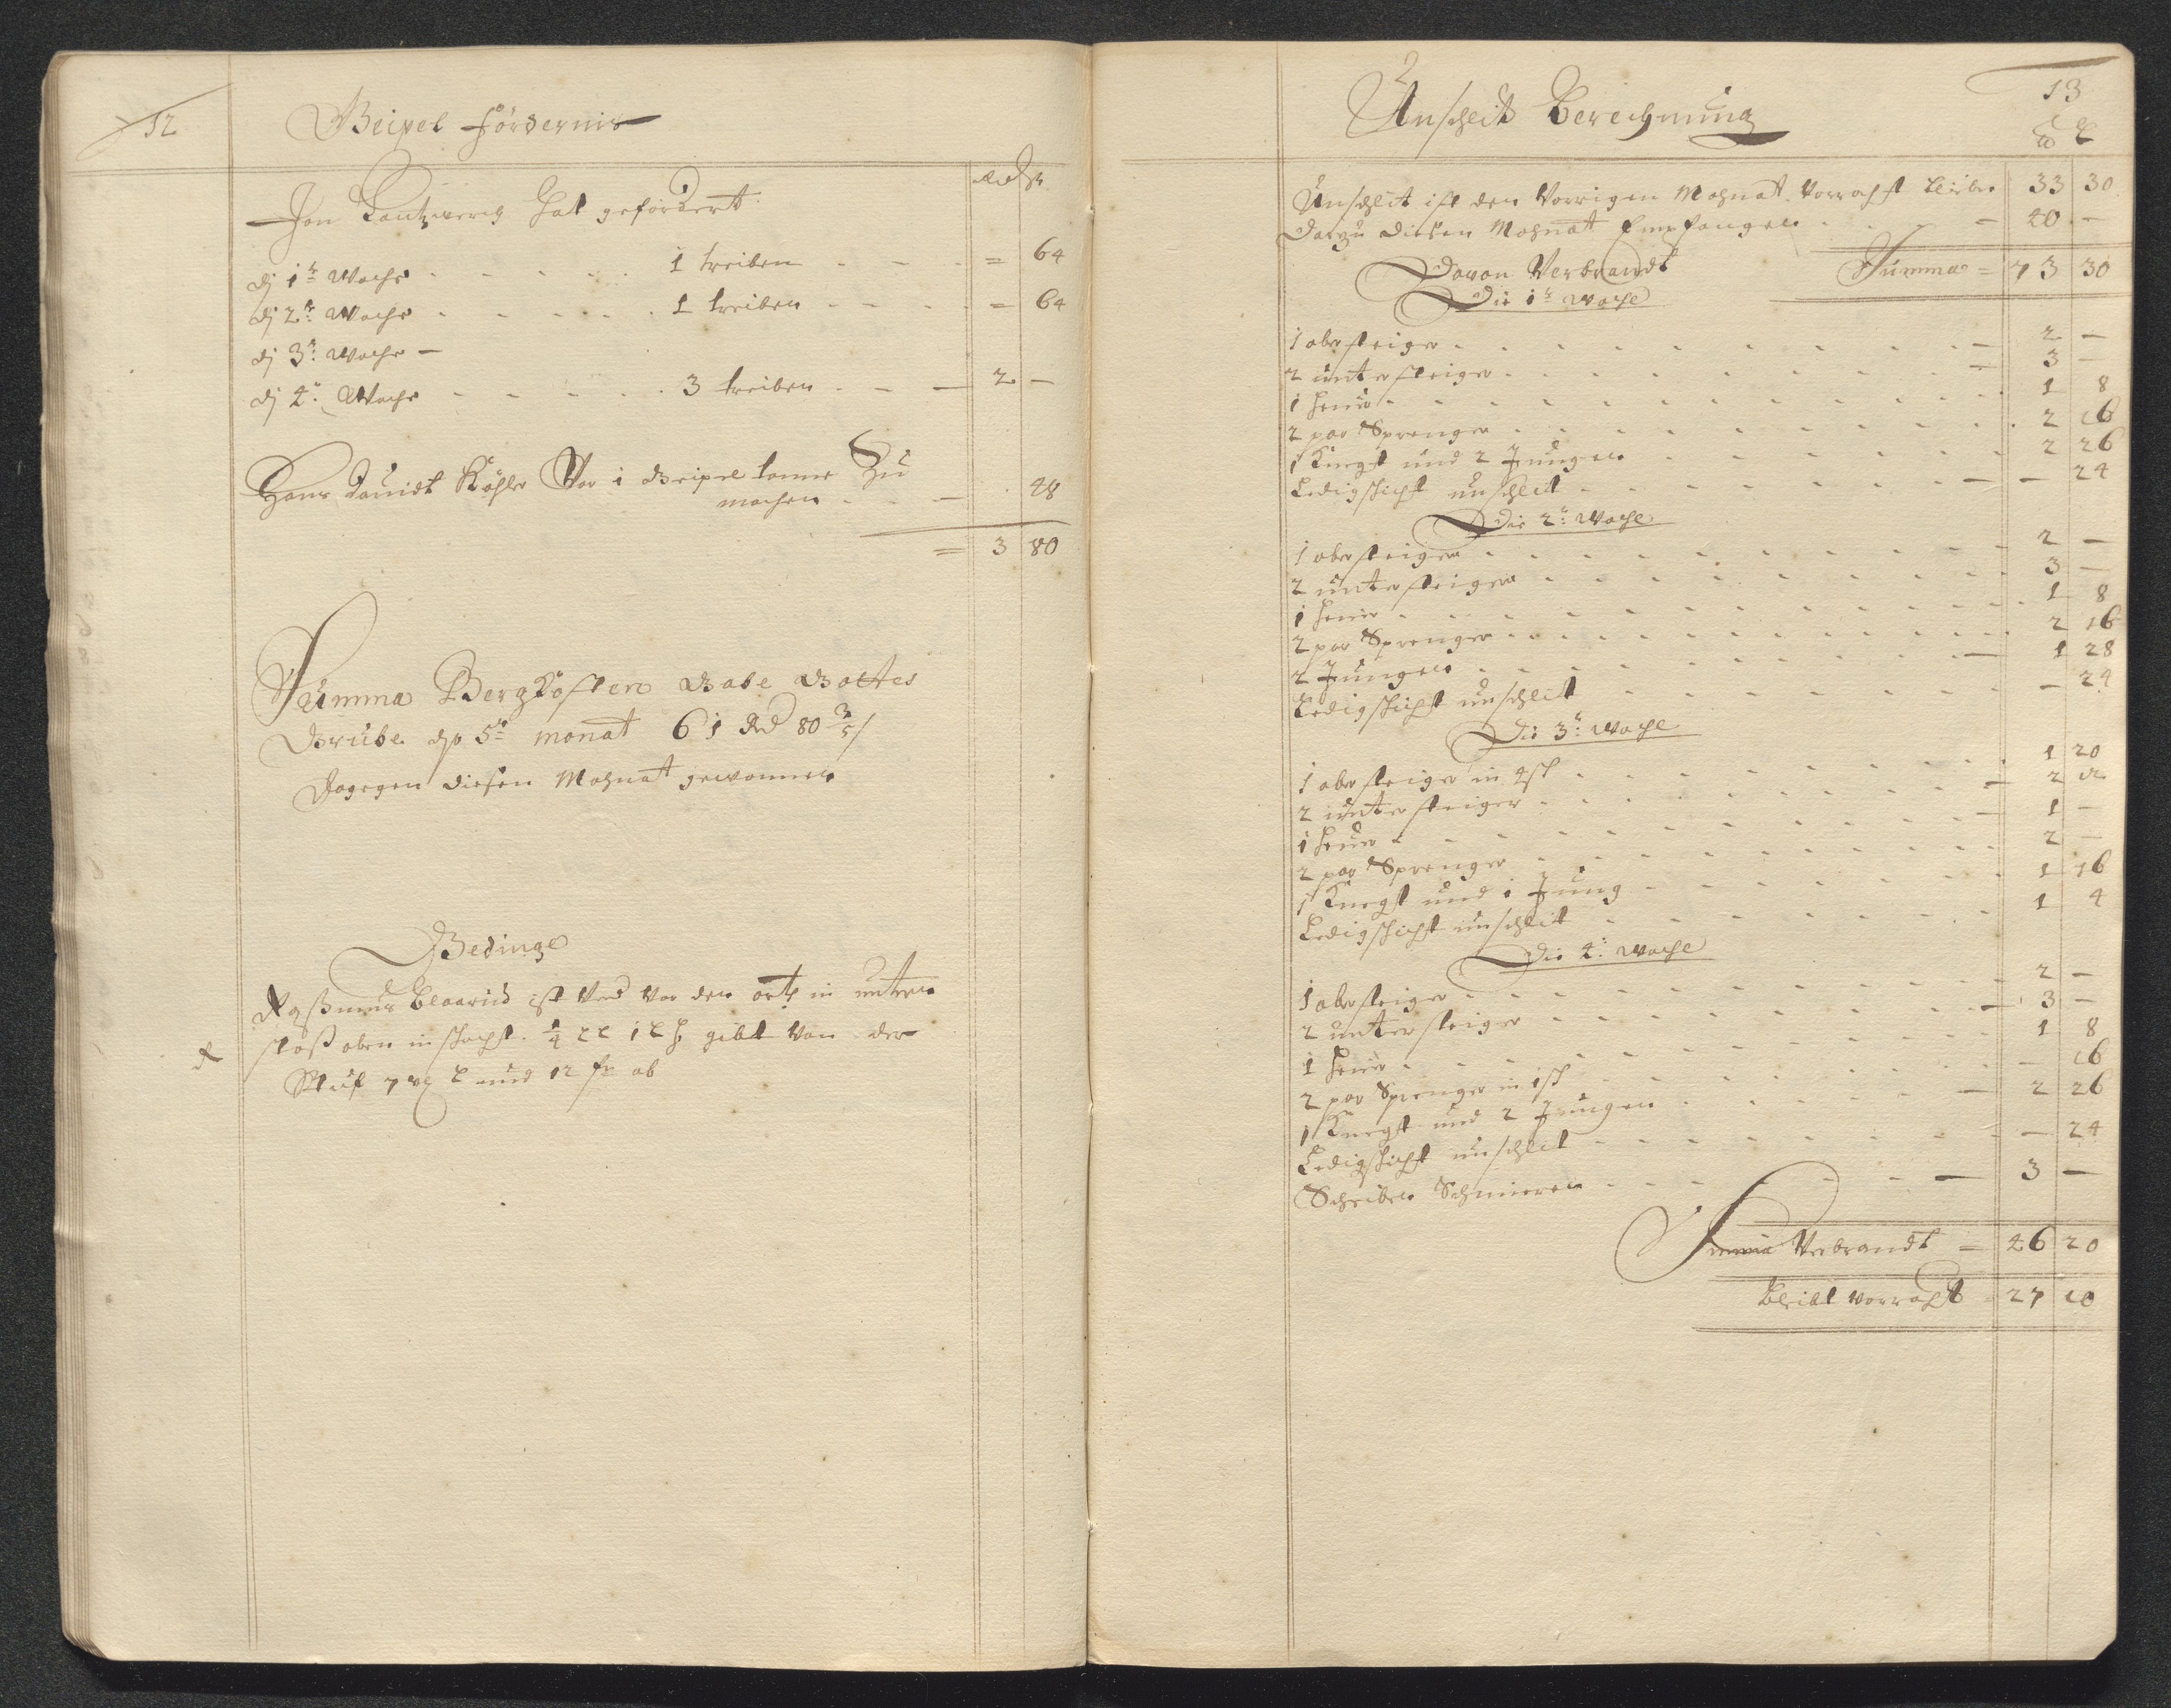 12
Geipel fördernis
Rd ß
Jon Lautzwerg hat gefördert
dj 1te Woche - - - - - 1 treiben - - - = 64
dj 2te Woche - - - - - 1 treiben - - - = 64
dj 3te Woche -
dj 4te Woche - - - - - 3 treiben - - - 2 -
Hans Dauidt Köhler Vor 1 Geipel tonne Zu
machen - - - 48
= 3 80
Summa Bergkosten Gabe Gottes
Grube dß 5te monat 61 Rd 80 3/5 /
Dagegen diesen Mohnat gewonnen
Gedinge
ist Vor den ort in untern
stoß oben in schacht. 1/4 gibt Von der
Stuf 7 und 12 ab
13
Unschlit Berechnung
℔ L
Unschlit ist den Vorrigen Mohnat Vorracht blieben 33 30
Darzu diesen Mohnat Empfangen - - - 40 -
Summa = 73 30
Davon Verbrandt
Die 1te Woche
1 obersteiger - - - 2 -
2 untersteiger - - - 3 -
1 heuer - - - 1 8
2 par Sprenger - - - 2 16
1 Knegt und 2 Jungen - - - 2 26
Ledigschicht unschlit - - - 24
Die 2te Woche
1 obersteiger - - - 2 -
2 untersteiger - - - 3 -
1 heuer - - - 1 8
2 par Sprenger - - - 2 16
2 Jungen - - - 1 28
Ledigschicht unschlit - - - 24
Die 3te Woche
1 obersteiger in 4 sch - - - 1 20
2 untersteiger - - - 2
1 heuer - - - 1 -
2 par Sprenger - - - 2 -
1 Knegt und 1 Jung - - - 1 16
Ledigschicht unschlit - - - 1 4
Die 4te Woche
1 obersteiger - - - 2 -
2 untersteiger - - - 3 -
1 heuer - - - 1 8
2 par Sprenger in 1 sch - - - 16
1 Knegt und 2 Jungen - - - 2 26
Ledigschicht unschlit - - - 24
Scheiben Schmieren - - - 3 -
Summa Verbrandt = 46 20
bleibt Vorracht = 27 10